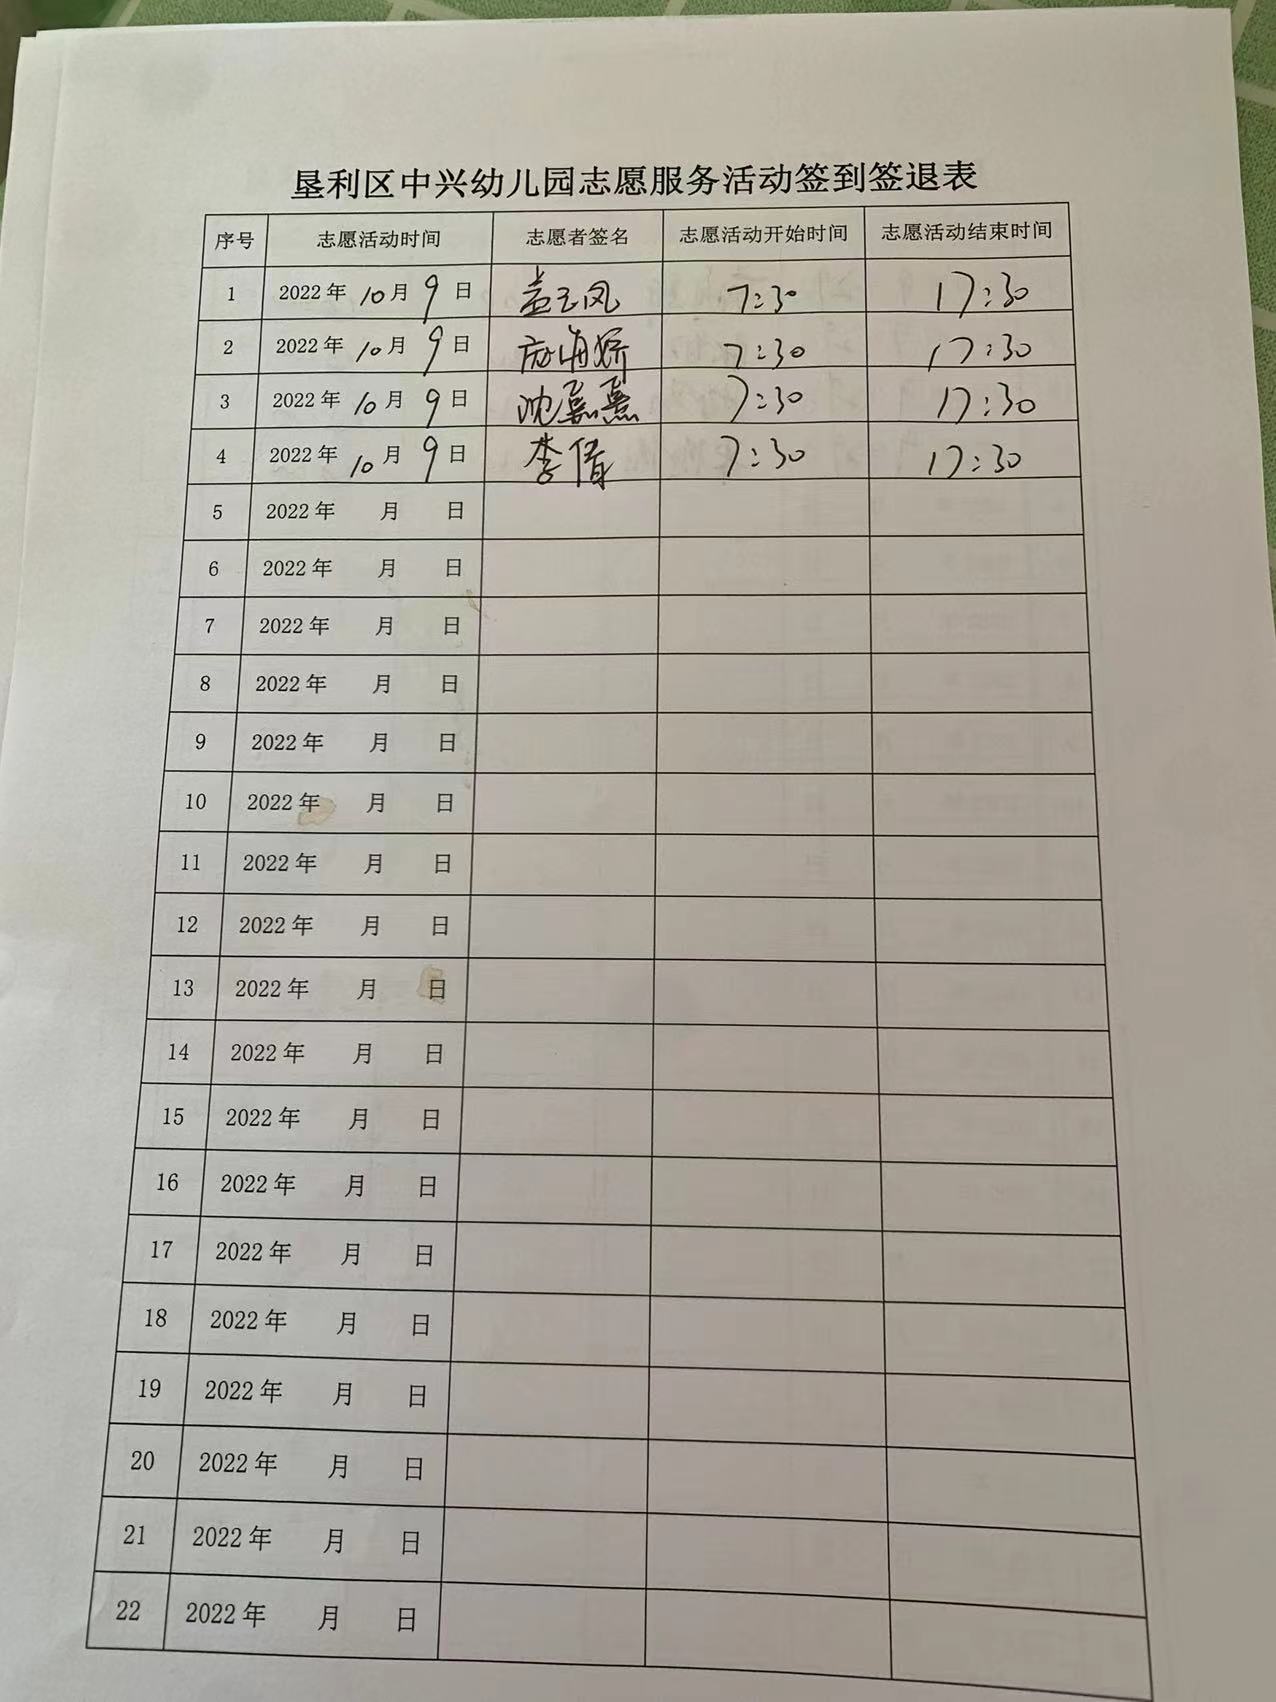 垦利区中兴幼儿园志愿服务活动签到签退表
序号 志愿活动时间 志愿者签名 志愿活动开始时间 志愿活动结束时间
1 2022年 10月 9日 盖玉凤 7:30 17:30
2 2022年 10月 9日 海娇 7:30 17:30
3 2022年 10月 9日 沈 7:30 17:30
4 2022年 10月 9日 李倩 7:30 17:30
5 2022年 月 日
6 2022年 月 日
7 2022年 月 日
8 2022年 月 日
9 2022年 月 日
10 2022年 月 日
11 2022年 月 日
12 2022年 月 日
13 2022年 月 日
14 2022年 月 日
15 2022年 月 日
16 2022年 月 日
17 2022年 月 日
18 2022年 月 日
19 2022年 月 日
20 2022年 月 日
21 2022年 月 日
22 2022年 月 日